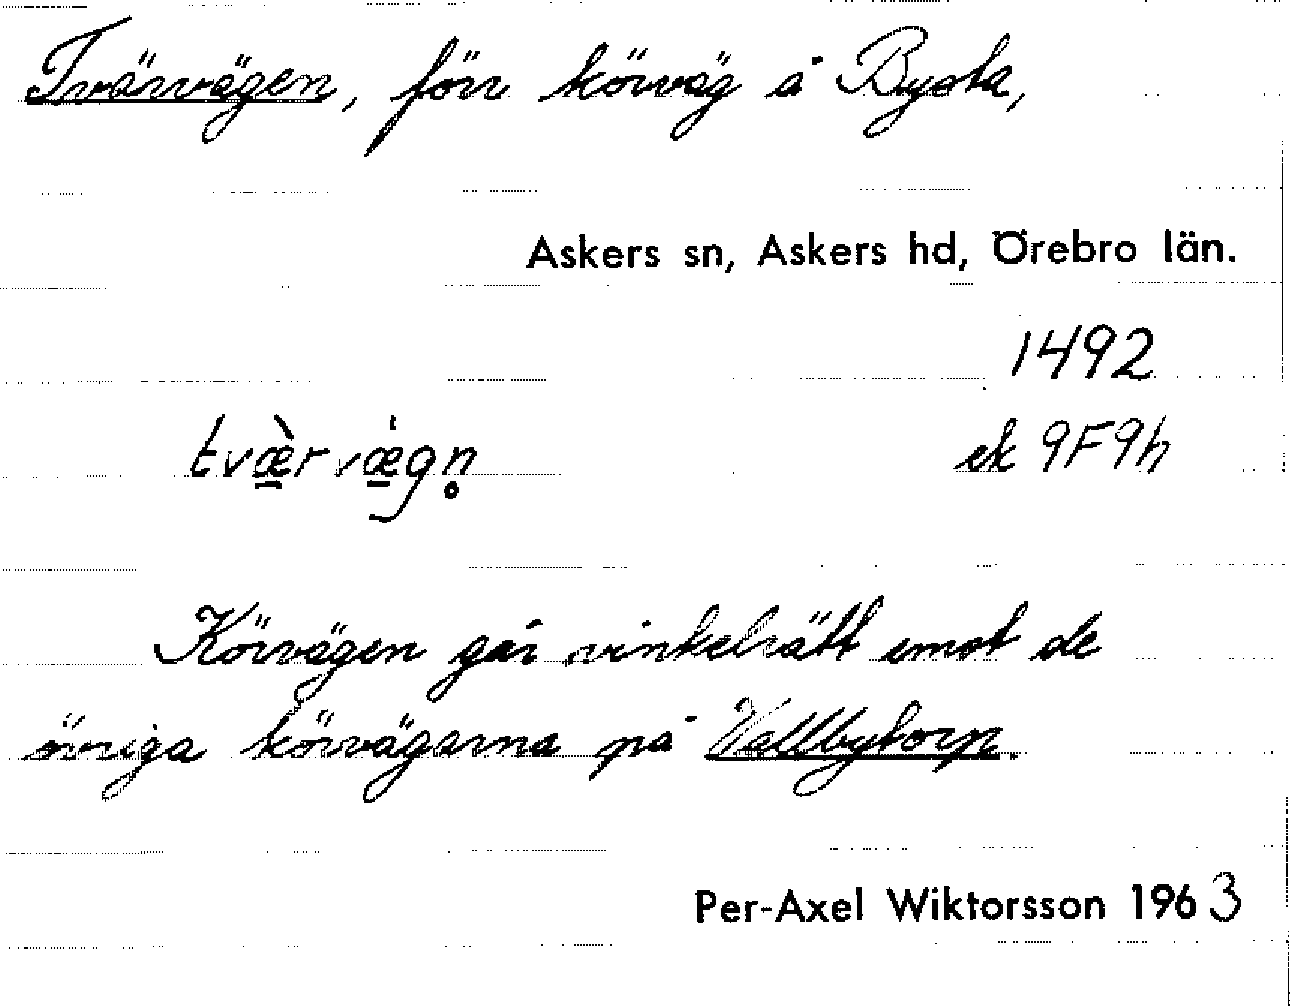 Tvärvägen, förr körväg å Bysta,
Askers sn, Askers hd, Örebro län.
1492
tvæ̀rvæ̀gn̥
ek 9F9h
Körvägen går vinkelrätt emot de
övriga körvägarna på Vallbytorp.
Per-Axel Wiktorsson 1963